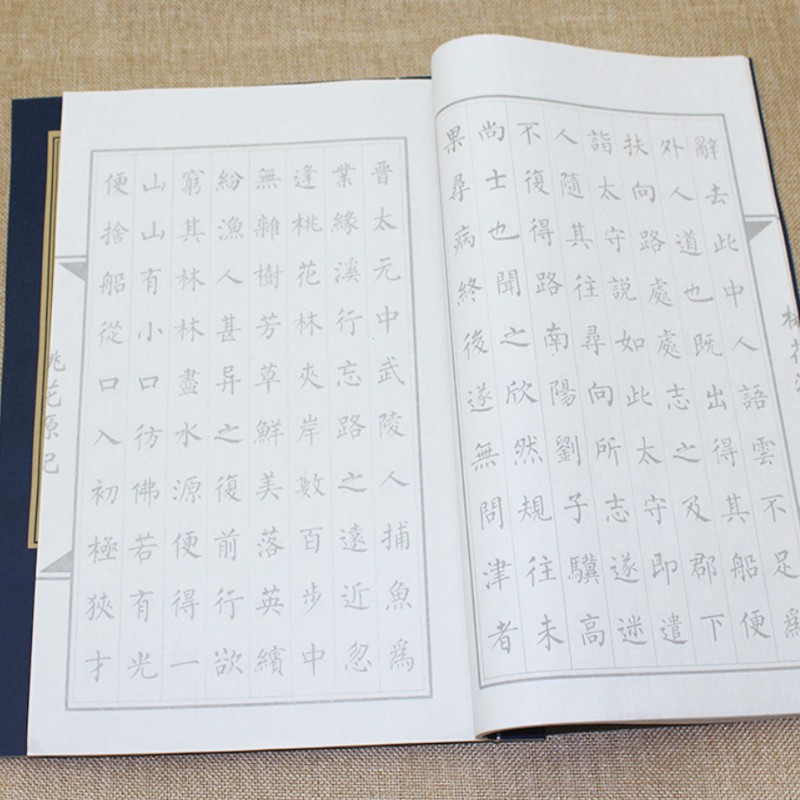 辭去此中人語雲不足爲
外人道也既出得其船便
扶向路處處志之及郡下
詣太守說如此太守即遣
人隨其往尋向所志遂迷
不復得路南陽劉子驥高
尚士也聞之欣然規往未
果尋病終後遂無問津者
晉太元中武陵人捕魚爲
業緣溪行忘路之遠近忽
逢桃花林夾岸數百步中
無雜樹芳草鮮美落英繽
紛漁人甚异之復前行欲
窮其林林盡水源便得一
山山有小口彷佛若有光
便捨船從口入初極狹才
桃花源記